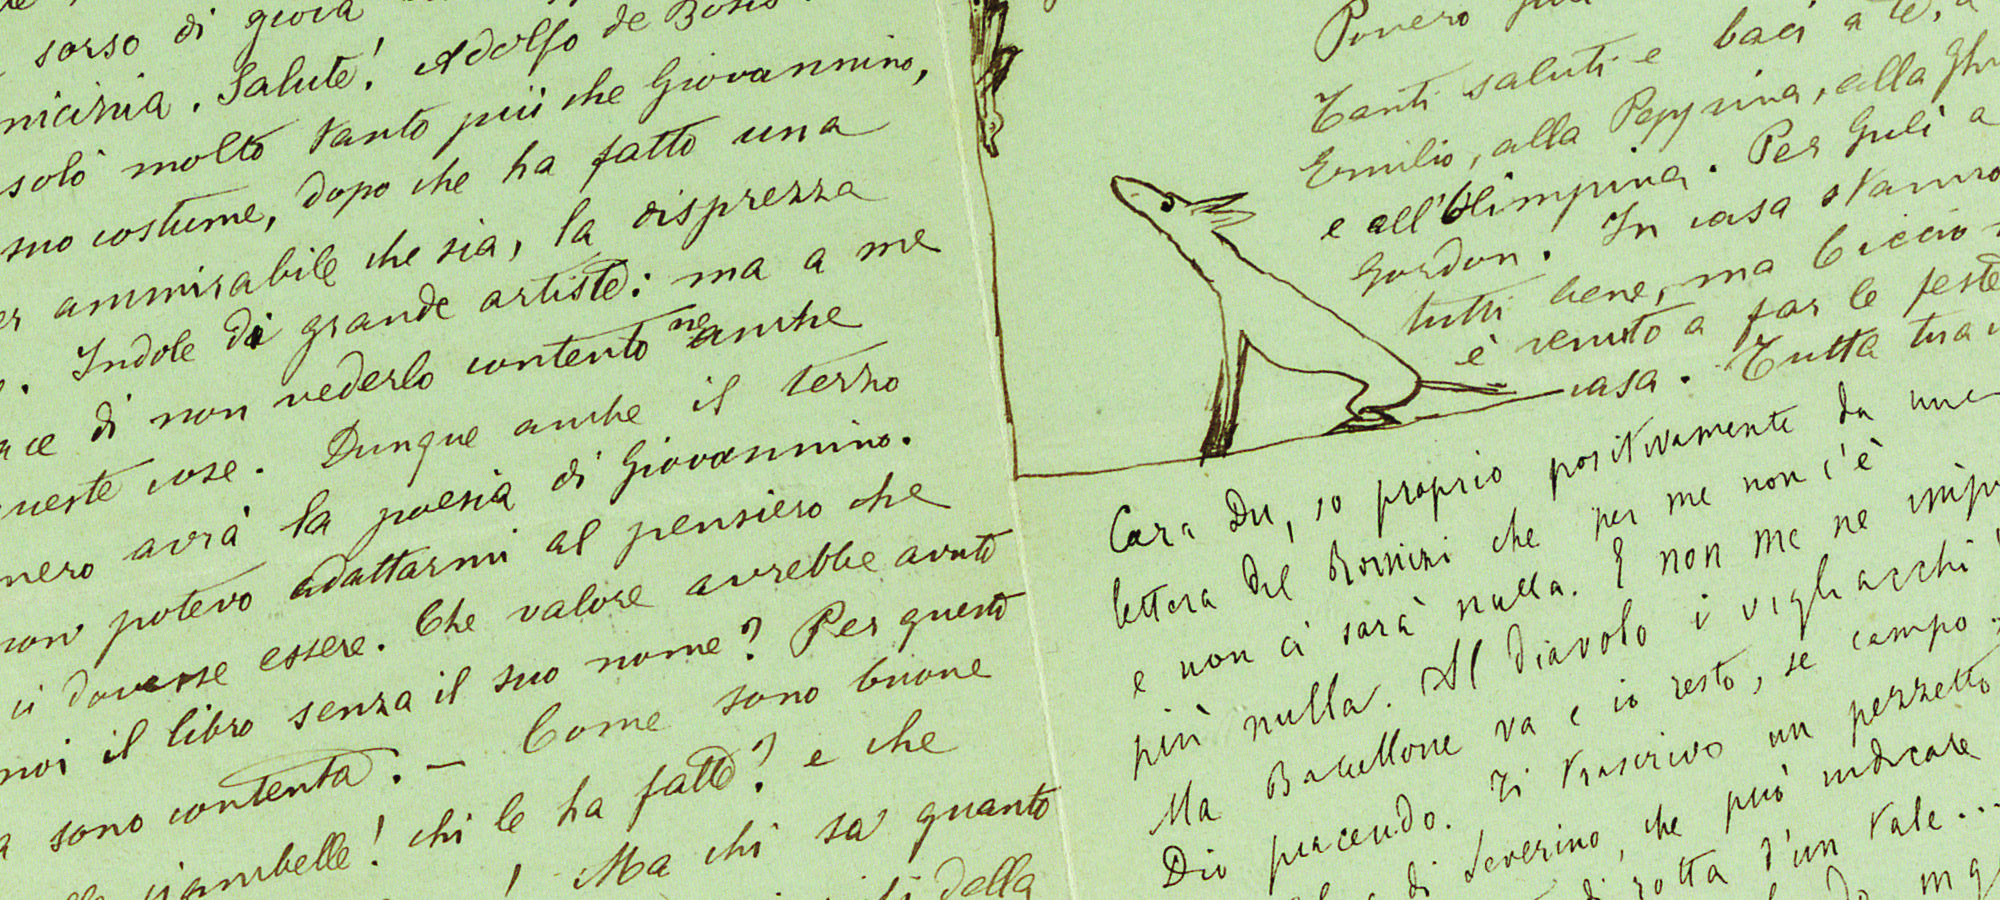 sorso di gioia
Salute! Adolfo de Bosis
solò molto tanto più che Giovannino,
suo costume, dopo che ha fatto una
ammirabile che sia, la disprezza
Indole di grande artista: ma a me
di non vederlo contento ne anche
cose. Dunque anche il terzo
avrà la poesia di Giovannino.
non potevo adattarmi al pensiero che
ci dovesse essere. Che valore avrebbe avuto
il libro senza il suo nome? Per questo
sono contenta. — Come sono buone
ciambelle! chi le ha fatte? e che
! Ma chi sa quanto
della
Povero
Tanti saluti e baci a te, a
Emilio, alla Peppina, alla
e all'Olimpina. Per Gulì a
Gordon. In casa stanno
tutti bene, ma Ciccio
è venuto a far le feste
casa. Tutta tua
Cara Du, so proprio positivamente da una
lettera del che per me non c'è
e non ci sarà nulla. E non me ne
più nulla. Al diavolo i vigliacchi!
Ma Bacellone va e io resto, se campo.
Dio piacendo. Ti trascrivo un pezzetto
di Severino, che può indicare
rotta d'un tale...